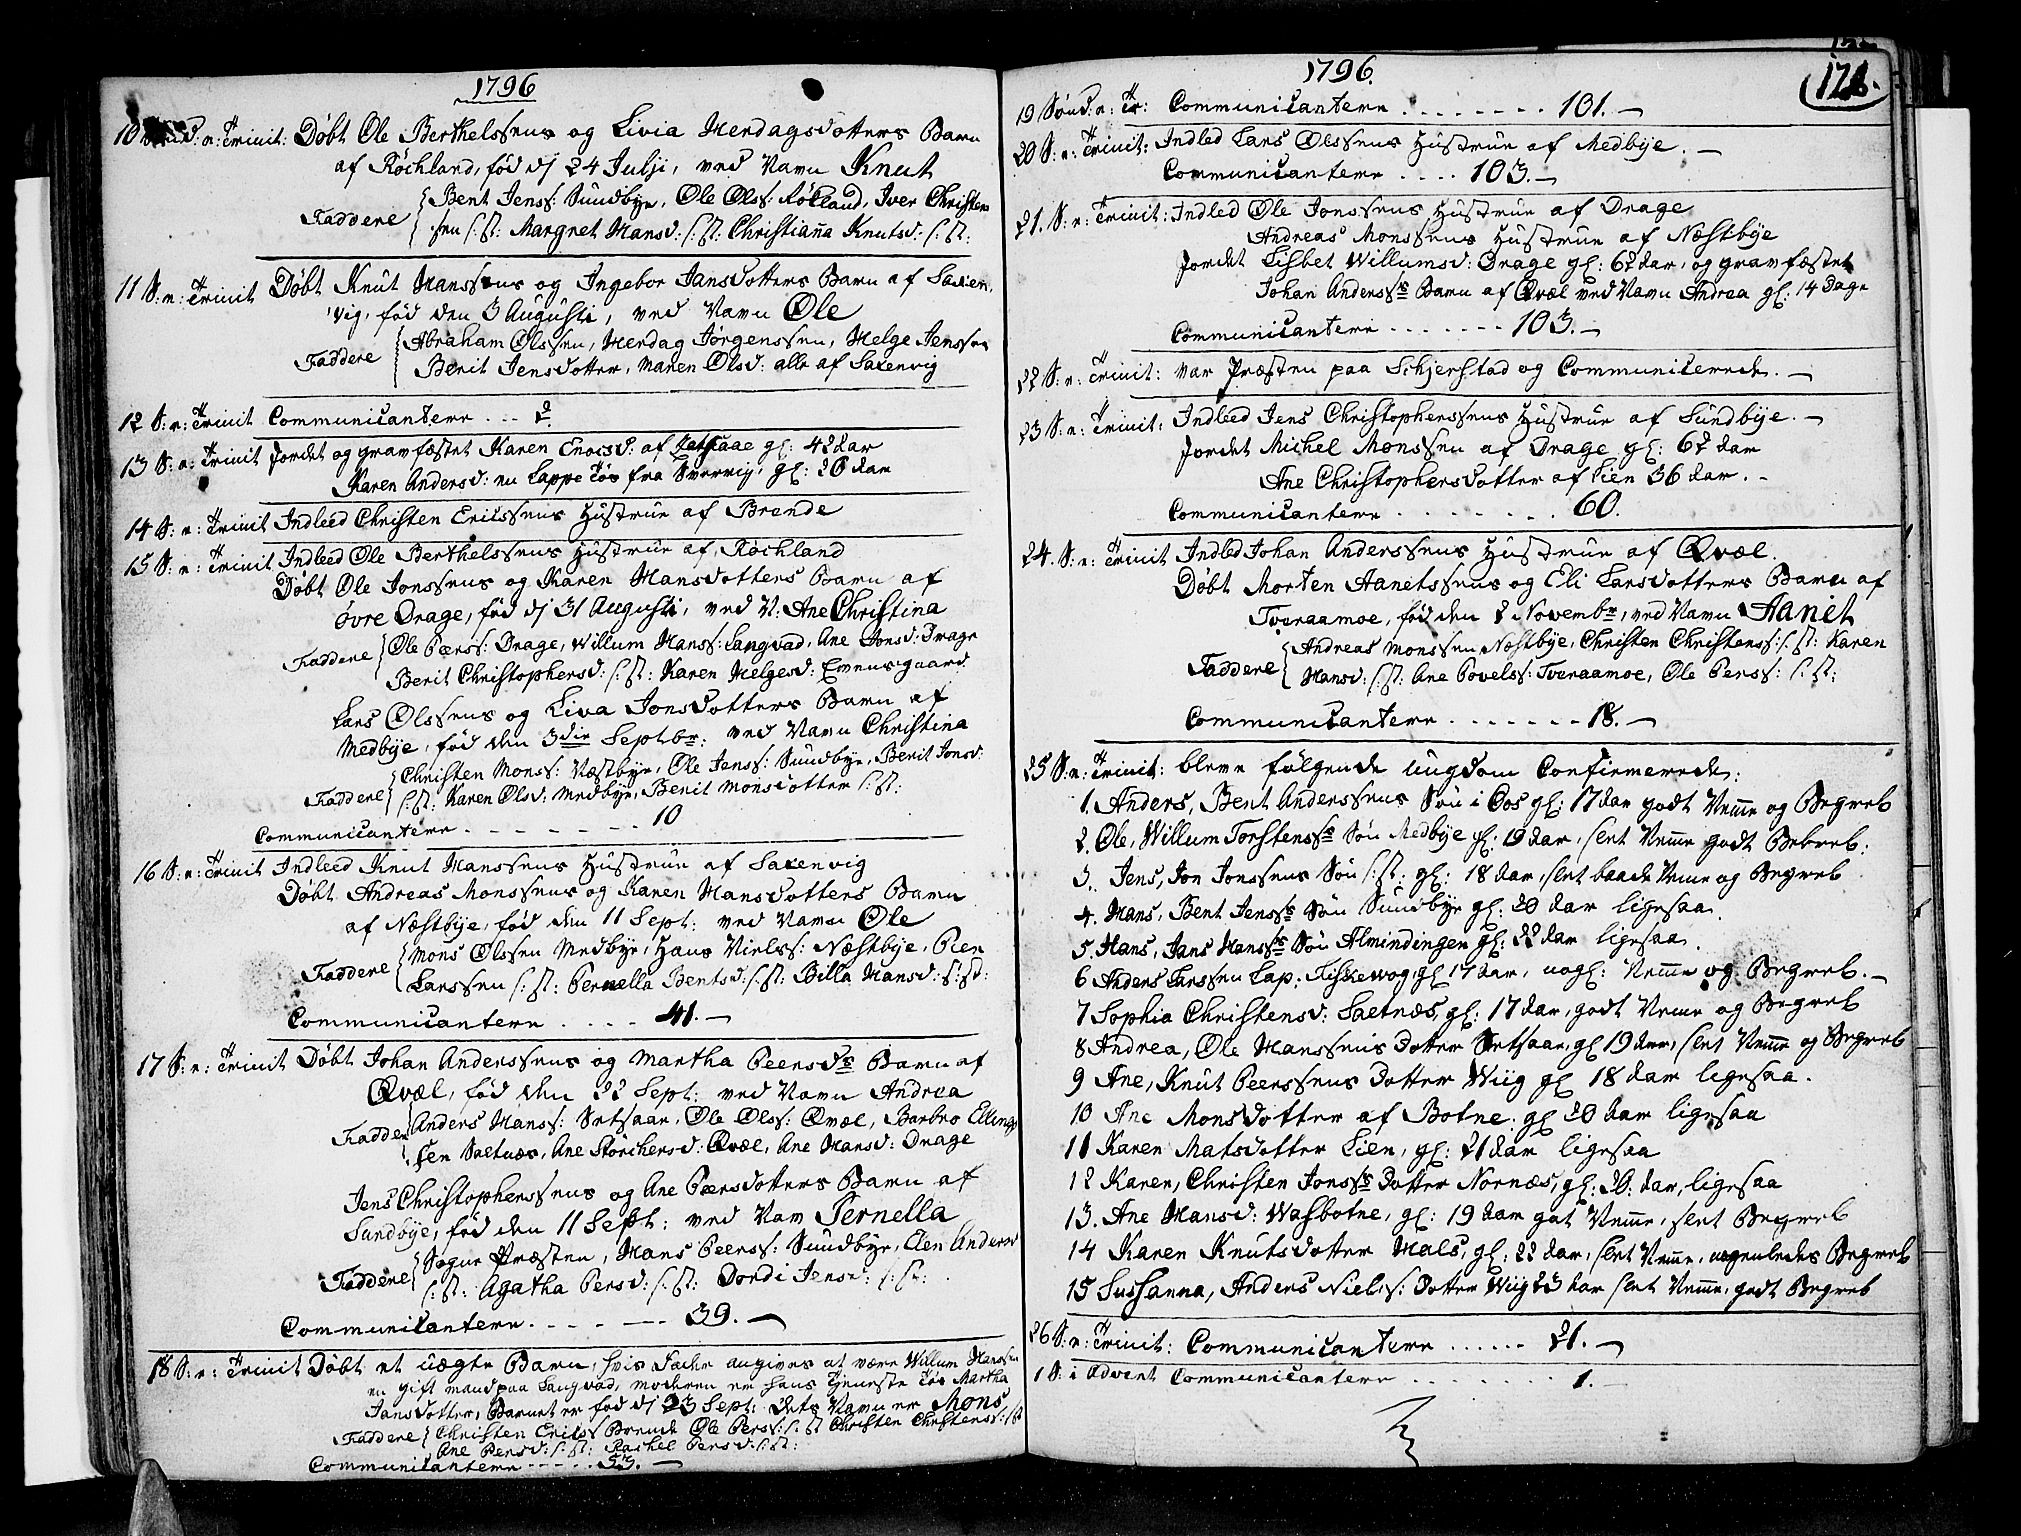 1796
10 Sønd: n: Trinit: Døbt Ole Berthelssens og Livia Merdagsdotters Barn
af Røchland, fød dj 24 Julji, ved Navn Knut
Faddere Bent Jenss: Sundbye, Ole Olss: Røkland, Iver Christen
sen s: st: Margret Hansd: s: st: Christiana Knutsd: s: st:
11 S: n: Trinit Døbt Knut Hanssens og Ingebor Jansdotters Barn af Saxen
vig, fød den 3 Augusti, ved Navn Ole
Faddere Abraham Olssen, Merdag Jørgenssen, Helge Jenssen
Berit Jensdotter, Maren Olsd: alle af Saxenvig
12 S: n: Trinit Communicantere . . . 2
13 S: n: Trinit Jordet og gravfæstet Karen Enocsd: af gl: 42 Aar
Karen Andersd: en Lappe Tøs fra gl: 20 Aar
14 S: n: Trinit Indleed Christen Ericssens Hustrue af Brende
15 S: n: Trinit Indleed Ole Berthelssens Hustrue af Røchland
Døbt Ole Jonssens og Karen Hansdotters Barn af
øvre Drage, fød dj 31 Augusti, ved N: Ane Christina
Faddere Ole Pærss: Drage, Willum Hanss: Langvad, Ane Jonsd: Drage
Berit Christophersd: s: st: Karen Helgesd: Evensgaard
Lars Olssens og Liva Jonsdotters Barn af
Medbye, fød den 3die Septbr: ved Navn Christina
Faddere Christen Monss: Næstbye, Ole Jenss: Sundbye, Berit Jonsd:
s: st: Karen Olsd: Medbye, Berit Monsdotter s: st:
Communicantere . . . . . . . 10
16 S: n: Trinit Indleed Knut Hanssens Hustrue af Saxenvig
Døbt Andreas Monssens og Karen Hansdotters Barn
af Næstbye, fød den 11 Sept: ved Navn Ole
Faddere Mons Olssen Medbye, Hans Nielss: Næstbye, Peer
Larssen s: st: Pernella Bentsd: s: st: Billa Hansd: s: st:
Communicantere . . . . 41. —
17 S: n: Trinit Døbt Johan Anderssens og Martha Peersdrs Barn af
Qvæl, fød den 22 Sept: ved Navn Andrea
Faddere Anders Hanss: Setsaae, Ole Olss: Qvæl, Barbro Ellings
sen Saetnæs, Ane Størchersd: Qvæl, Ane Hansd: Drage
Jens Christopherssens og Ane Pæersdotters Barn af
Sundbye, fød den 11 Sept: ved Nav Pernella
Faddere Sogne Præsten, Hans Peerss: Sundbye, Elen Andersd
s: st: Agatha Persd: s: st: Dordi Jensd: s: st:
Communicantere . . . . — 39. —
18 S: n: Trinit Døbt et uægte Barn, hvis Fader angives at være Willum Hanssen
en gift mand paa Langvad, moderen er hans tjeneste Tøs Martha
Jansdotter, Barnet er fød dj 23 Sept: dets Navn er Mons
Faddere Christen Ericss Brende Ole Perss: s: st Christen Christenss: s: st
Ane Persd: s: st: Rachel Persd: s: st:
Communicantere . . . . . 53. —
1796.
178.
19 Sønd: n: Tr: Communicantere . . . . . . . . 101. —
20 S: n: Trinit: Indled Lars Olssens Hustrue af Medbye. —
Communicantere . . . . 103. —
21. S: n: Trinit: Indled Ole Jonssens Hustrue af Drage
Andreas Monssens Hustrue af Næstbye
Jordet Lisbet Willumsd: Drage gl: 62 Aar, og gravfæstet
Johan Anderssrs Barn af Qvæl ved Navn Andrea gl: 14 Dage
Communicantere . . . . . . . 103. —
22 S: n: Trinit: var Præsten paa Schjerstad og Communicerede. —
23 S: n: Trinit: Indleed Jens Christopherssens Hustrue af Sundbye. —
Jordet Michel Monssen af Drage gl: 62 Aar
Ane Christophersdotter af Lien 36 Aar. -
Communicantere . . . . . . . . 60.
24. S: n: Trinit Indled Johan Anderssens Hustrue af Qvæl.
Døbt Morten Aanetssens og Eli Larsdotters Barn af
Tveraamoe, fød den 2 Novembr, ved Navn Aanet
Faddere Andreas Monssen Næstbye, Christen Christenss: s: st: Karen
Hansd: s: st: Ane Povelss: Tveraamoe, Ole Perss: s: st:
Communicantere . . . . . . . 18. —
25 S: n: Trinit: bleve følgende ungdom Confirmerede:
1. Anders, Bent Anderssens Søn i Oos gl: 17 Aar godt Nemme og Begreb
2. Ole, Willum Torstenssrs Søn Medbye gl: 19 Aar, slet Nemme godt Bebreb.
3. Jens, Jon Jonssens Søn s: st: gl: 18 Aar, slet baade Neme og Begreb
4. Hans, Bent Jenssrs Søn Sundbye gl: 20 Aar ligesaa
5. Hans, Jans Hanssrs Søn Almindingen gl: 22 Aar ligesaa.
6 Anders Larssen Lap: Fiskewog gl 17 Aar, nogl: Nemme og Begreb. —
7 Sophia Christensd: Saetnæs, gl: 17 Aar, godt Neme og Begreb
8 Andrea, Ole Hanssens Dotter Setsaae, gl 19 Aar, slet Nemme og Begreb
9 Ane, Knut Peerssens Dotter Wiig gl 18 Aar ligesaa.
10 Ane Monsdotter af Botne gl 20 Aar ligesaa
11 Karen Matsdotter Lien, gl: 21 Aar ligesaa
12 Karen, Christen Jonssrs Dotter Nornæs, gl: 20: Aar, ligesaa
13. Ane Hansd: Wasbotne, gl: 19 Aar got Nemme, slet Begreb
14 Karen Knutsdotter Hals, gl: 22 Aar, slet Nemme, nogenledes Begreb
15 Sussanna, Anders Nielss: Dotter Wiig 23 Aar slet Nemme, godt Begreb
26 S: n: Trinit: Communicantere . . . . . . 21. —
1 S: i Advent Communicantere . . . . . . . . 1. —